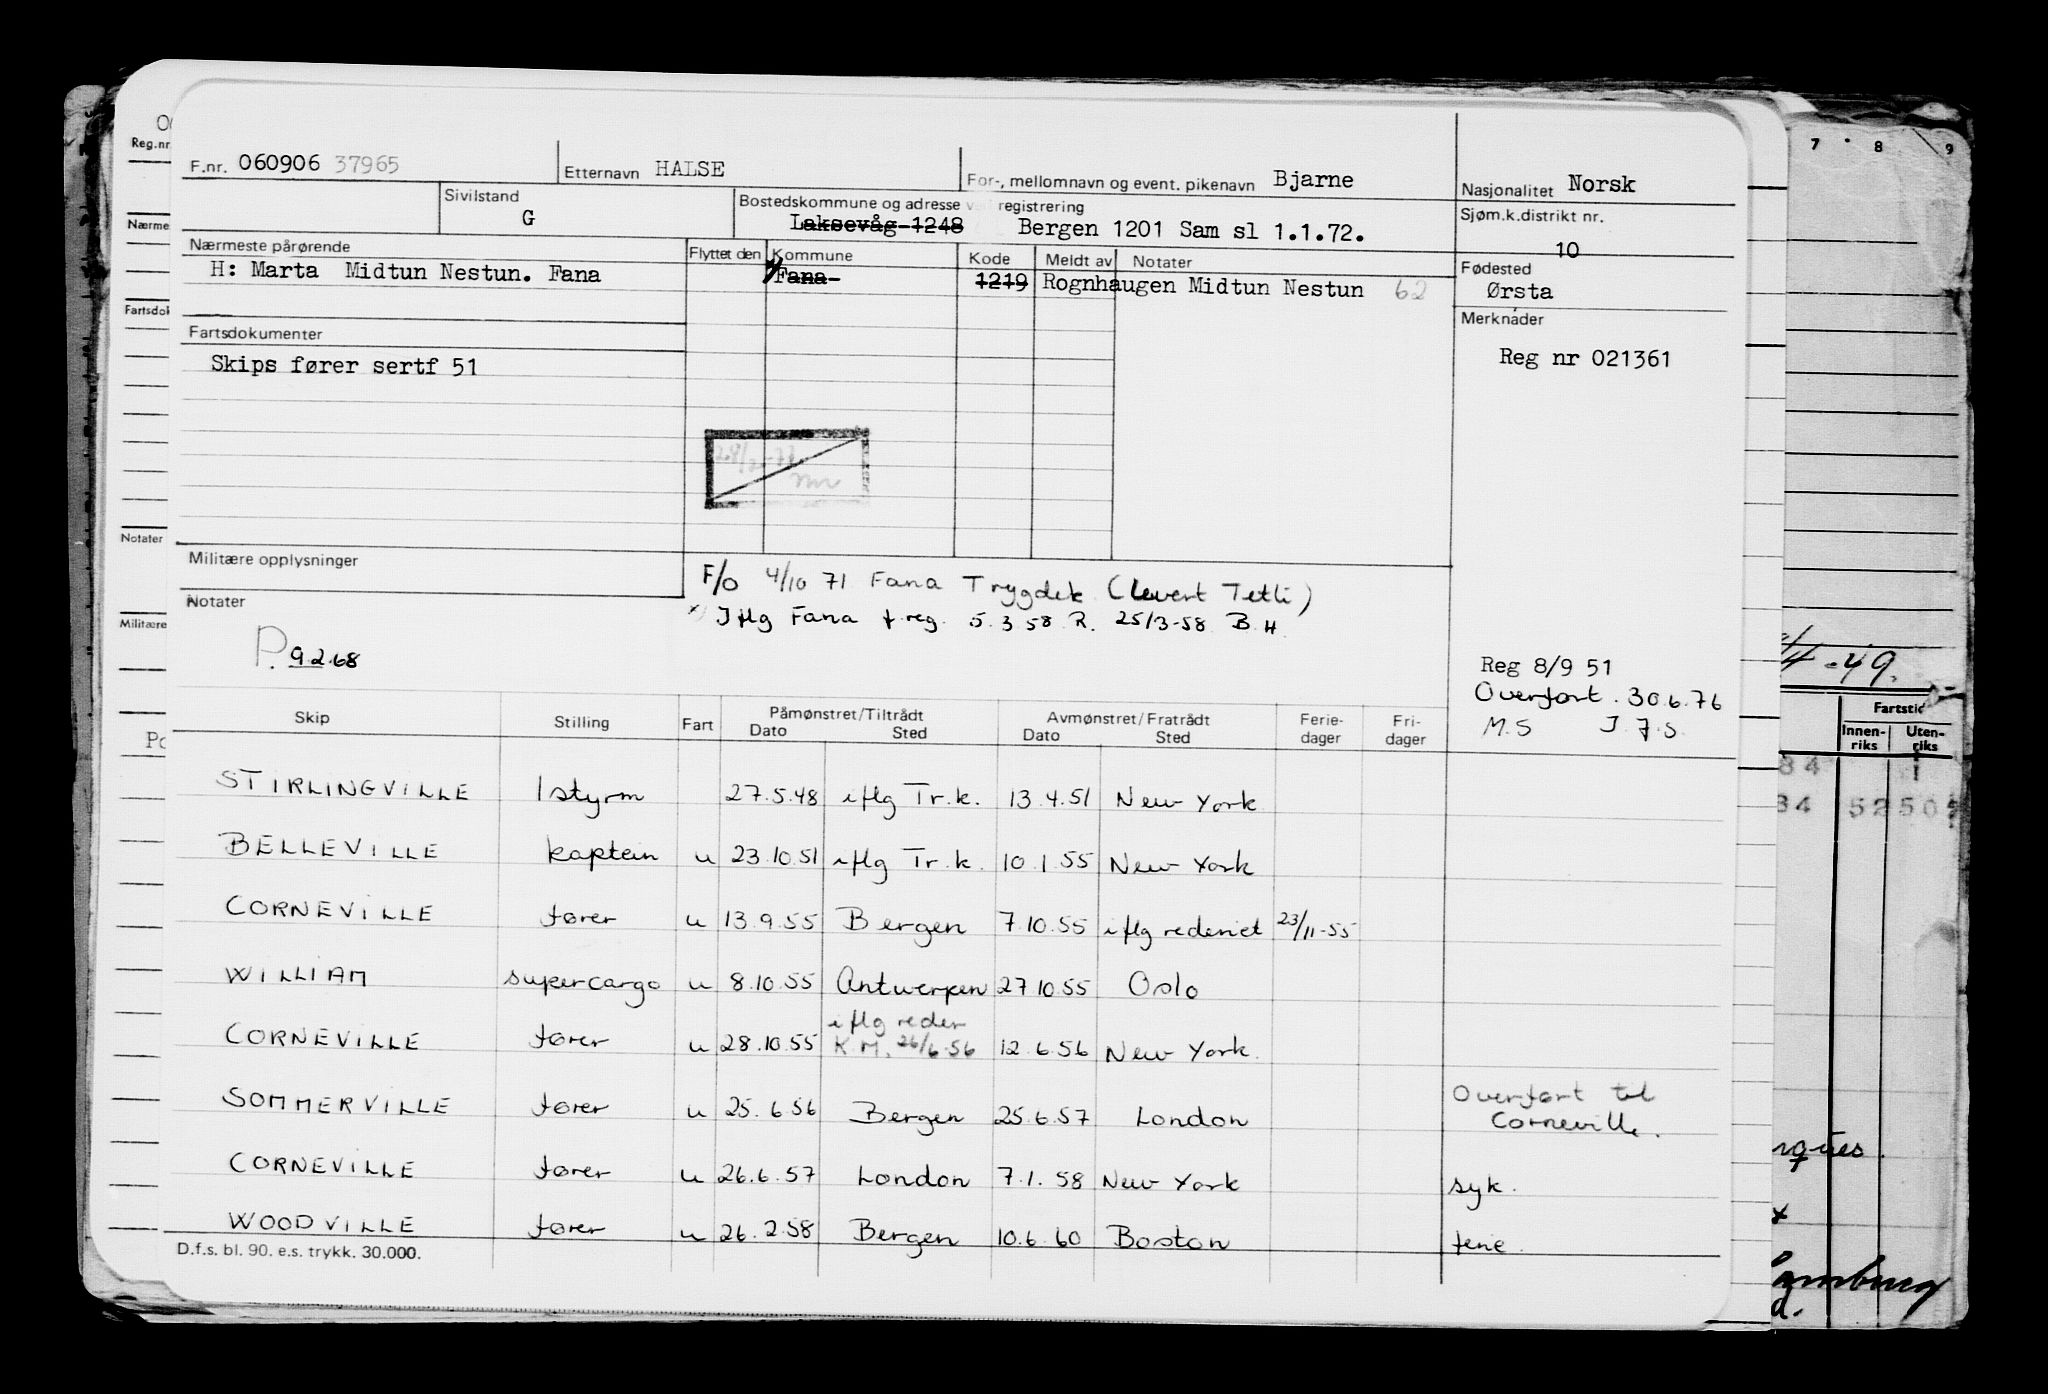 F.nr. 060906 37965 Etternavn HALSE For-, mellomnavn og event. pikenavn Bjarne Nasjonalitet Norsk
Sivilstand G Bostedskommune og adresse registrering Sjøm.k.distrikt nr. 10
Laksevåg 1248 Bergen 1201 Sam sl 1.1.72.
Nærmeste pårørende Flyttet den Kommune Kode Meldt av Notater Fødested
H: Marta Midtun Nestun. Fana Fana 1219 Rognhaugen Midtun Nestun 62 Ørsta
Fartsdokumenter Merknader
Skips fører sertf 51 Reg nr 021361
Militære opplysninger
F/o 4/10 71 Fana Trygdek (levert Tetli)
Notater
Iflg Fana f.reg. 5.3 58 R. 25/3-58 B.H.
P. 9.2.68
Reg 8/9 51
Overført. 30.6.76
M.S J.F.S.
Skip Stilling Fart Påmønstret/Tiltrådt Dato Sted Avmønstret/Fratrådt Dato Sted Ferie-dager Fri-dager
STIRLINGVILLE 1 styrm 27.5.48 iflg Tr.k. 13.4.51 New York
BELLEVILLE kaptein u 23.10.51 iflg Tr.k. 10.1.55 New York
CORNEVILLE fører u 13.9.55 Bergen 7.10.55 iflg rederiet 23/11-55
WILLIAM supercargo u 8.10.55 Antwerpen 27.10.55 Oslo
CORNEVILLE fører u 28.10.55 iflg reder K.M. 26/6-56 12.6.56 New York.
SOMMERVILLE fører u 25.6.56 Bergen 25.6.57 London Overført til Corneville.
CORNEVILLE fører u 26.6.57 London 7.1.58 New York syk.
WOODVILLE fører u 26.2.58 Bergen 10.6.60 Boston ferie.
D.f.s. bl. 90. e.s. trykk. 30.000.
Reg.nr
Nærme
Fartsdok
Notater
Militære
7 8 9
4-49.
Fartstid
Innen-riks Uten-riks
84 1
34 52 50